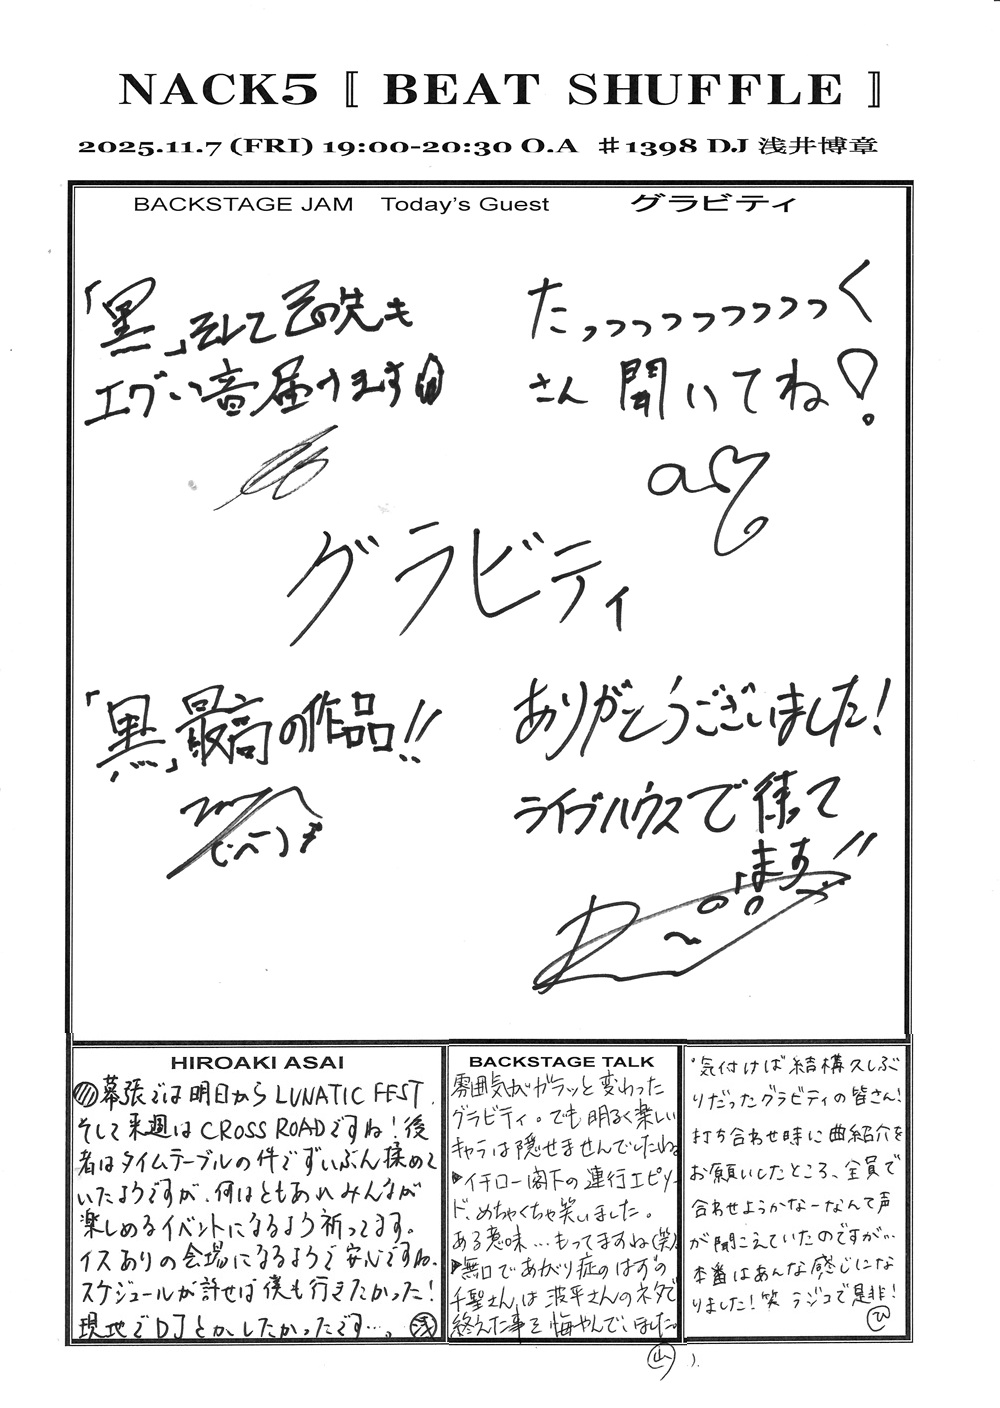 NACK5 『 BEAT SHUFFLE 』
2025.11.7 (FRI) 19:00-20:30 O.A ♯1398 DJ 浅井博章
BACKSTAGE JAM Today's Guest グラビティ
「黒」そしてその先も
エグい音届けます
たっっっっっっっっっく
さん 聞いてね!
グラビティ
「黒」最高の作品!!
ありがとうございました!
ライブハウスで待って
ます!!
HIROAKI ASAI
幕張では明日からLUNATIC FEST.
そして来週はCROSS ROADですね!後
者はタイムテーブルの件でずいぶん揉めて
いたようですが、何はともあれみんなが
楽しめるイベントになるよう祈ってます。
イスありの会場になるようで安心ですね。
スケジュールが許せば僕も行きたかった!
現地でDJとかしたかったです…。浅
BACKSTAGE TALK
雰囲気がガラッと変わった
グラビティ。でも明るく楽しい
キャラは隠せませんでしたね
▶イチロー閣下の連行エピソー
ド、めちゃくちゃ笑いました。
ある意味…もってますね(笑)
▶無口であがり症のはずの
千聖さんは波平さんのネタで
終えた事を悔やんでいました。
山
・気付けば結構久しぶ
りだったグラビティの皆さん!
打ち合わせ時に曲紹介を
お願いしたところ、全員で
合わせようかなーなんて声
が聞こえていたのですが…
本番はあんな感じにな
りました!笑 ラジコで是非!
ひ